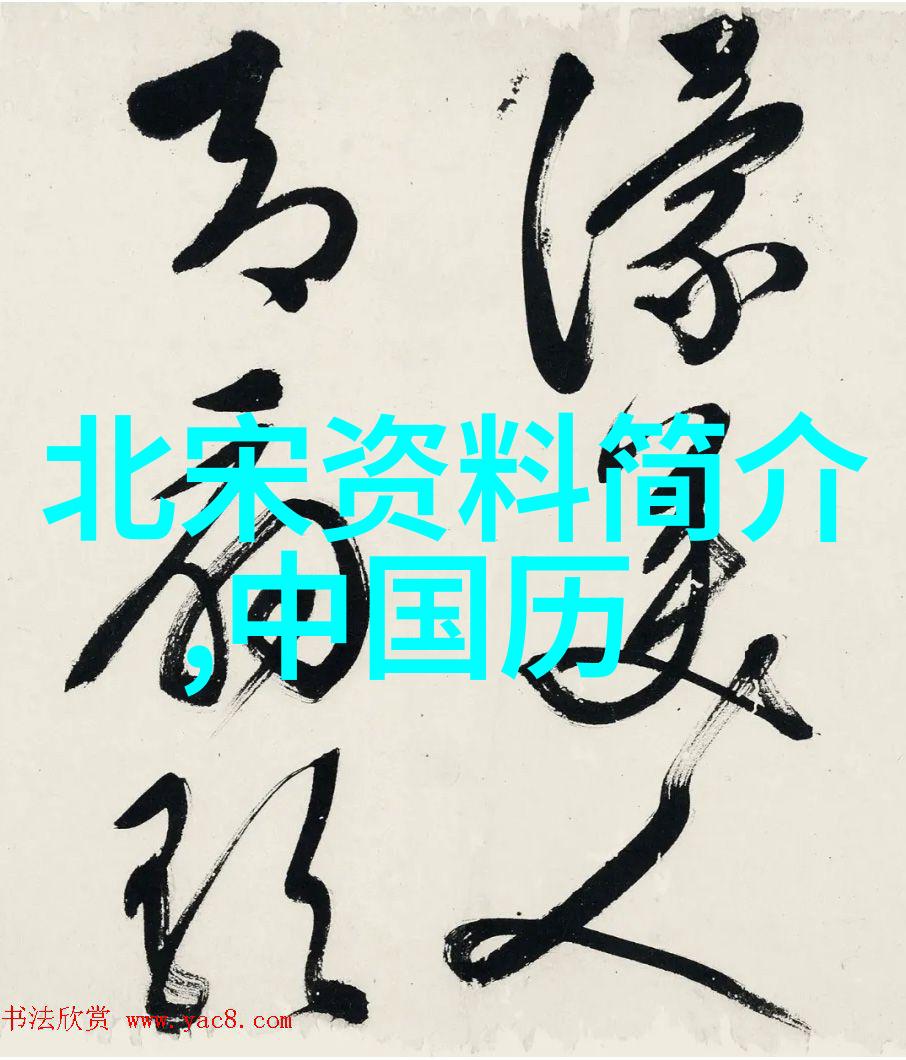 濛美人
北宋资料简介
,中国历
书法欣赏 www.yac8.com